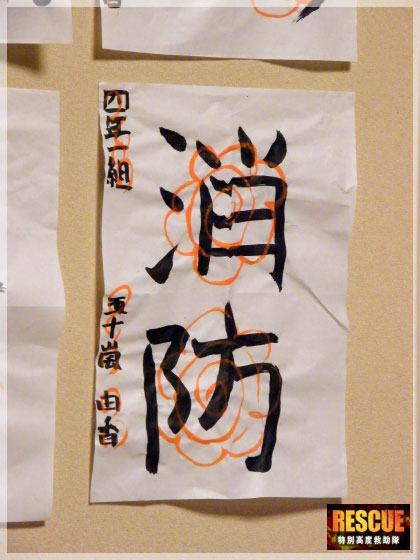 消防
四年一組
五十嵐 由香
RESCUE
特別高度救助隊